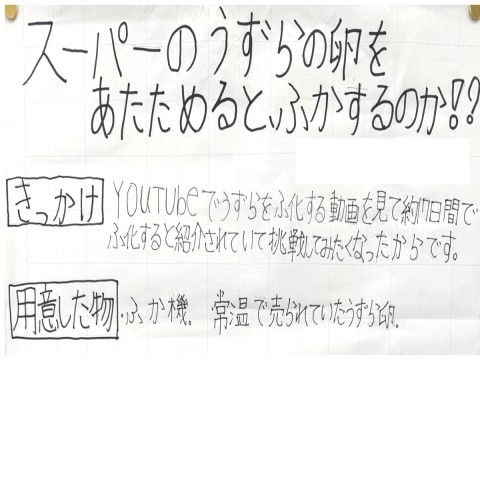 スーパーのうずらの卵を
あたためると、ふかするのか!?
きっかけ YOUTUBeでうずらをふ化する動画を見て約17日間で
ふ化すると紹介されていて挑戦してみたくなったからです。
用意した物 ・ふか機。 常温で売られていたうずら卵。